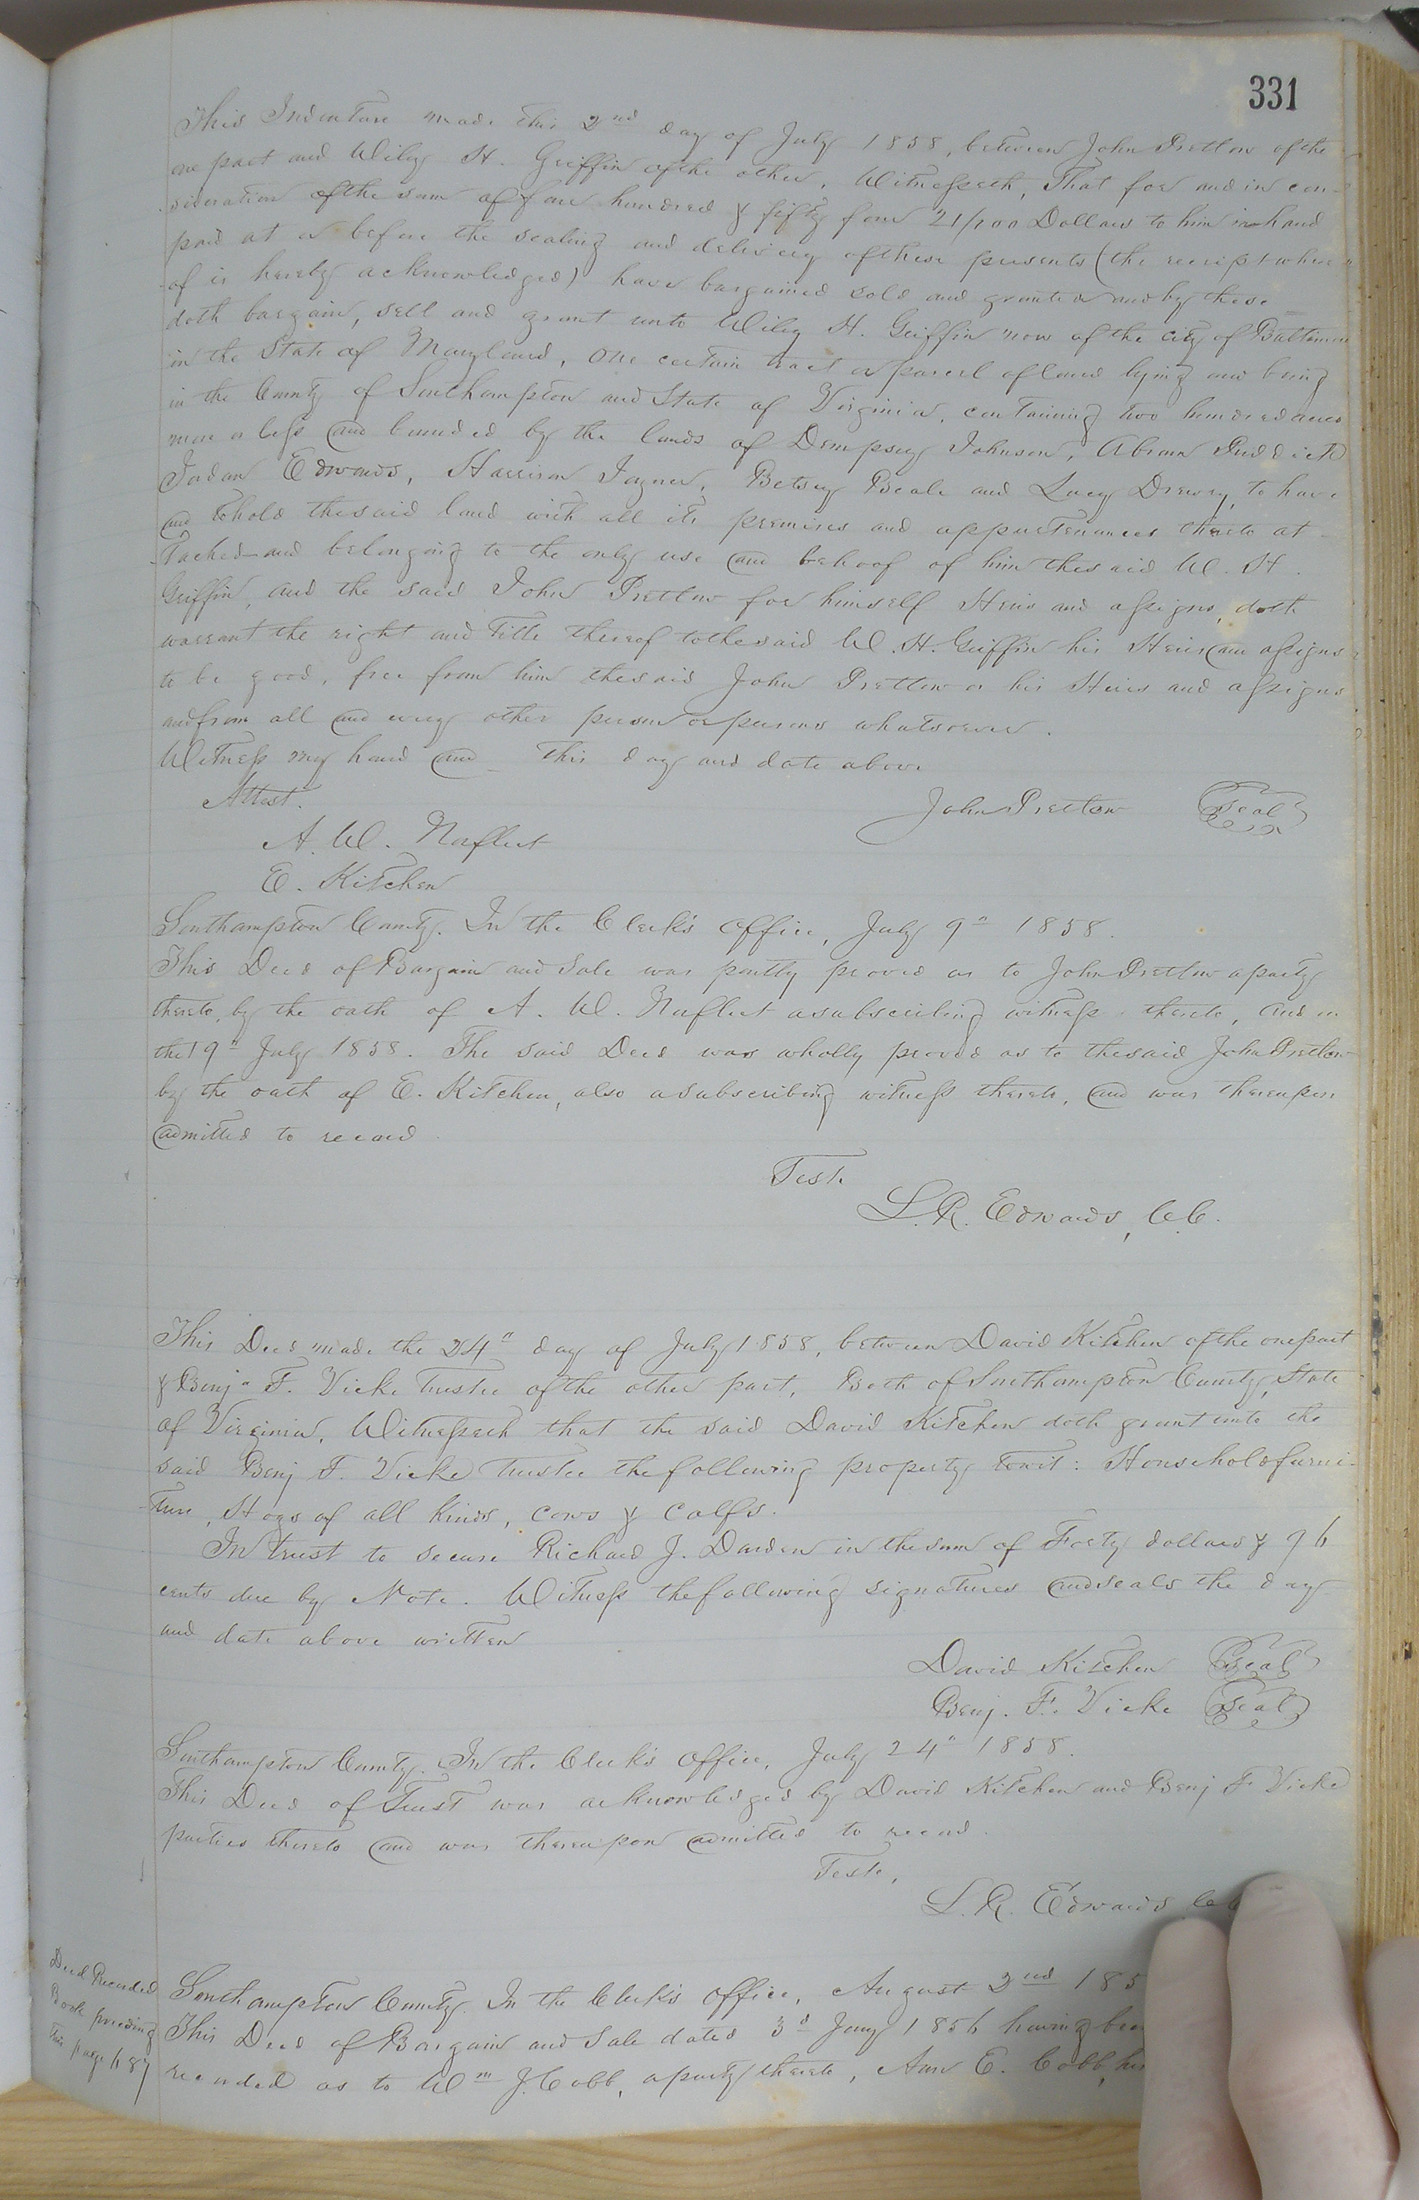 331
This Indenture made this 2nd day of July 1858, between John Pretlow of the
one part and Wiley H. Griffin of the other, Witnesseth, That for and in con-
sideration of the sum of four hundred & fifty four 21/100 Dollars to him in hand
paid at or before the sealing and delivery of these presents (the receipt where-
of is hereby acknowledged) have bargained sold and granted and by these
doth bargain, sell and grant unto Wiley H. Griffin now of the city of Baltimore
in the State of Maryland, One certain tract or parcel of land lying and being
in the County of Southampton and State of Virginia, containing two hundred acres
more or less and bounded by the lands of Dempsey Johnson, Abram
Jordan Edwards, Harrison Joyner, Betsey Beale and Lucy Drewry, to have
and to hold the said land with all its premises and appurtenances thereto at-
tached and belonging to the only use and behoof of him the said W. H.
Griffin, and the said John Pretlow for himself Heirs and assigns, doth
warrant the right and title thereof to the said W. H. Griffin his Heirs and assigns
to be good, free from him the said John Pretlow or his Heirs and assigns
and from all and every other person or persons whatsoever.
Witness my hand and this day and date above
Attest. John Pretlow Seal
A. W. Norfleet
E. Kitchen
Southampton County. In the Clerk's Office, July 9" 1858.
This Deed of Bargain and Sale was partly proved as to John Pretlow a party
thereto, by the oath of A. W. Norfleet a subscribing witness thereto, And on
the 19" July 1858. The said Deed was wholly proved as to the said John Pretlow
by the oath of E. Kitchen, also a subscribing witness thereto, and was thereupon
admitted to record.
Teste
L. R. Edwards, C.C.
This Deed made the 24" day of July 1858, between David Kitchen of the one part
& Benj" F. Vicke Trustee of the other part, Both of Southampton County, State
of Virginia, Witnesseth that the said David Kitchen doth grant unto the
said Benj F. Vicke Trustee the following property towit: Household furni-
ture, Hogs of all kinds, cows & calfs.
In trust to secure Richard J. Darden in the sum of Forty dollars & 96
cents due by Note. Witness the following signatures and seals the day
and date above written
David Kitchen Seal
Benj. F. Vicke Seal
Southampton County. In the Clerk's Office, July 24" 1858.
This Deed of Trust was acknowledged by David Kitchen and Benj F Vicke
parties thereto and was thereupon admitted to record.
Teste,
L. R. Edwards
Deed Recorded
Book preceding
this page 687
Southampton County. In the Clerk's Office, August 2nd 185
This Deed of Bargain and Sale dated 3d Jany 1856 having been
recorded as to Wm J. Cobb, a party thereto, Ann E. Cobb, his